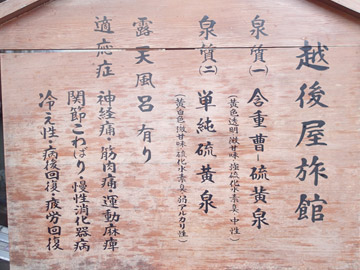 越後屋旅館
泉質(一) 含重曹-硫黄泉
(黄色透明微甘味強硫化水素臭中性)
泉質(二) 単純硫黄泉
(黄白色微甘味硫化水素臭弱アルカリ性)
露天風呂有り
適応症 神経痛・筋肉痛・運動麻痺
関節こわばり・慢性消化器病
冷え性・病後回復・疲労回復